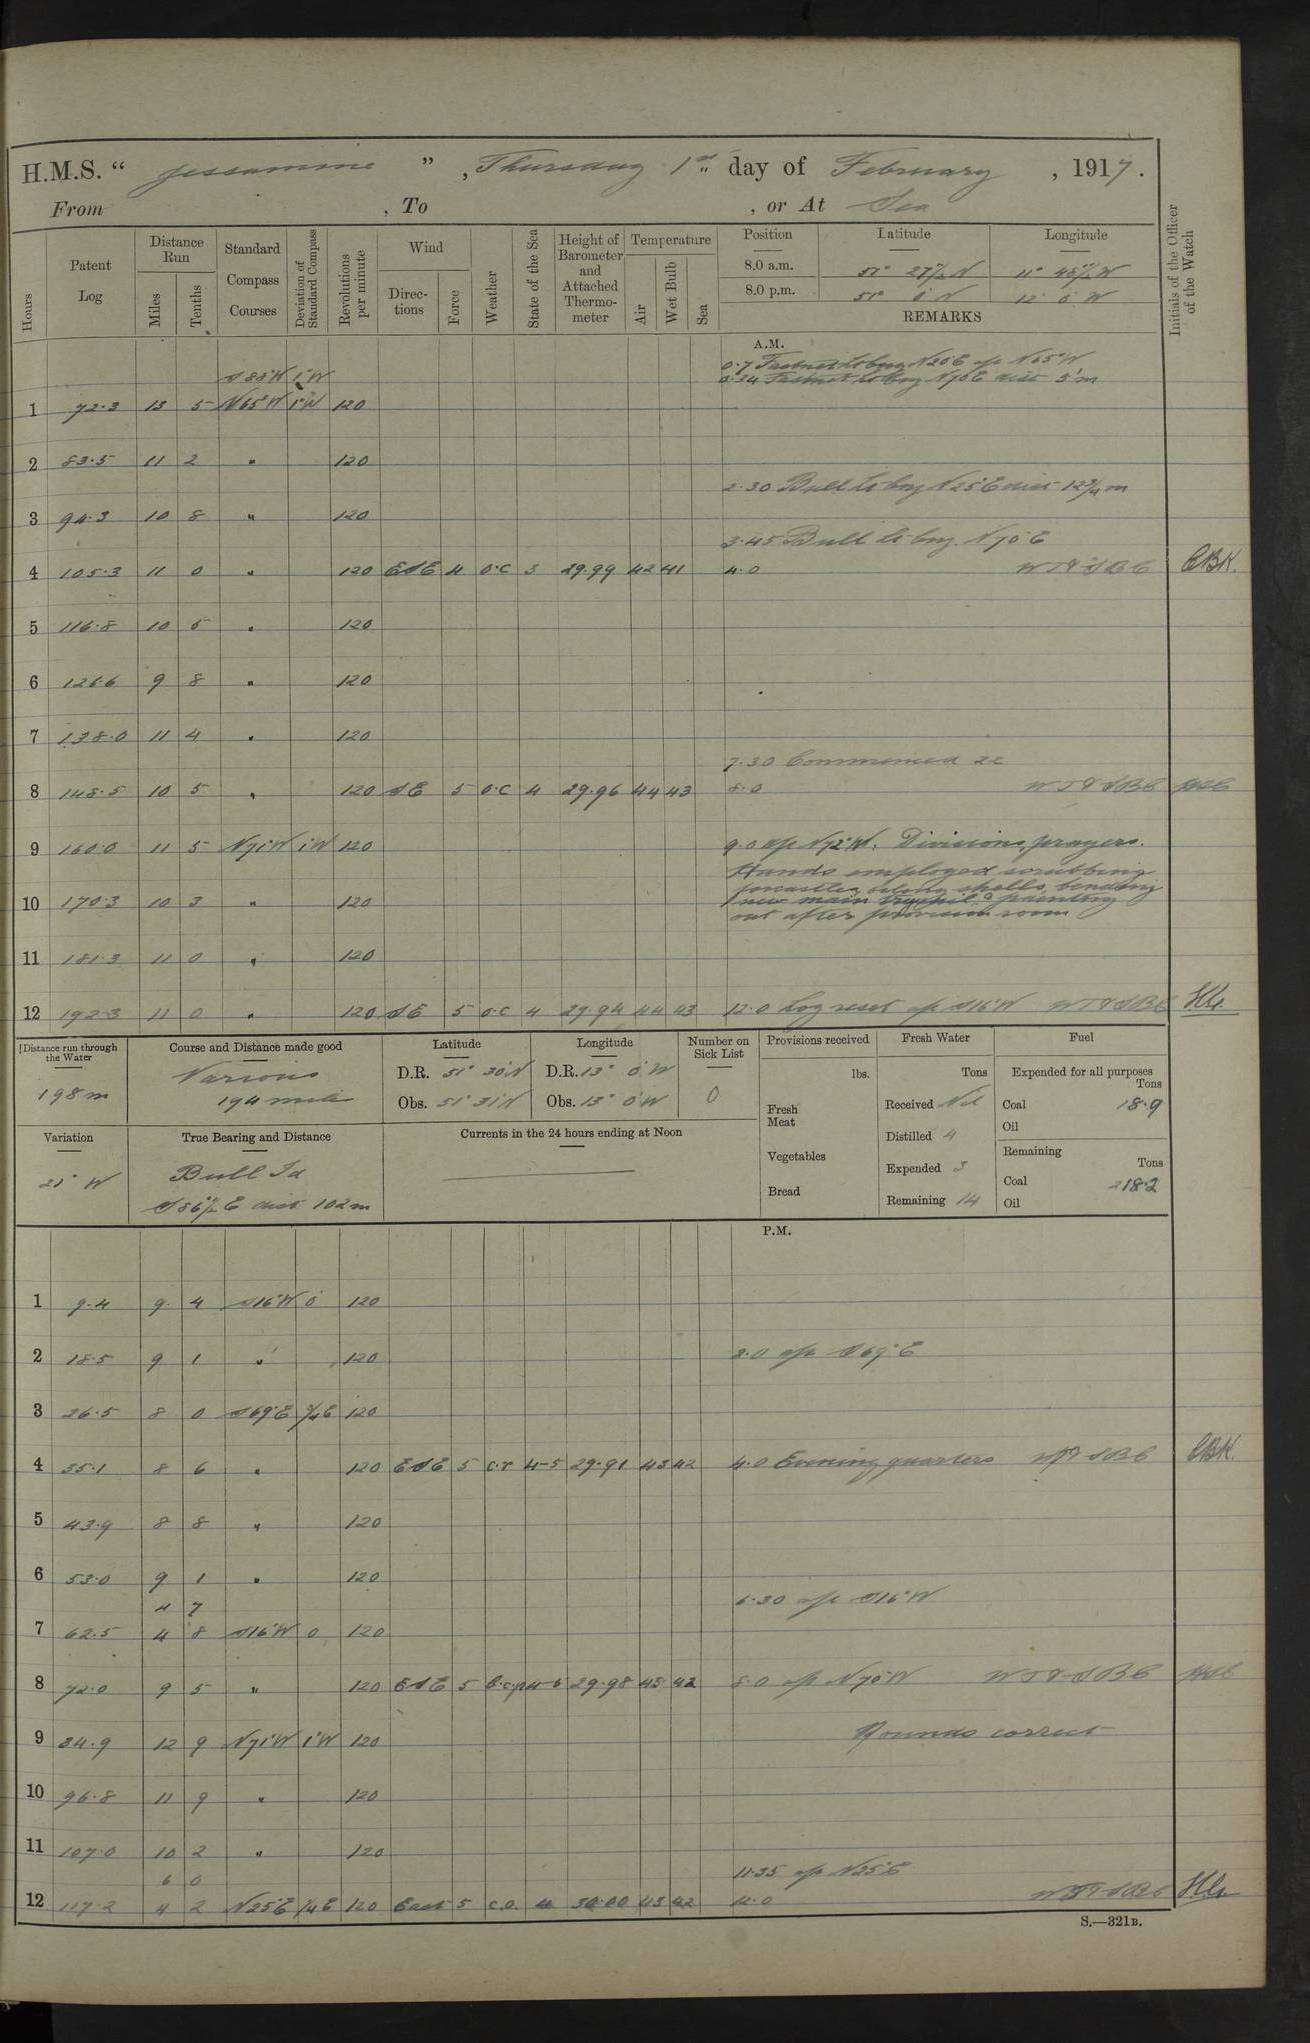 H.M.S. " Jessamine ", Thursday 1st day of February, 1917.
From , To , or At Sea
Hours
Patent Log
Distance Run
Miles
Tenths
Standard Compass Courses
Deviation of Standard Compass
Revolutions per minute
Wind
Directions
Force
Weather
State of the Sea
Height of Barometer and Attached Thermometer
Temperature
Air
Wet Bulb
Sea
Position
Latitude
Longitude
8.0 a.m. 51° 27½ N 11° 45½ W
8.0 p.m. 51° 0' N 12° 0' W
REMARKS
Initials of the Officer of the Watch
A.M.
0.7 Fastnet Lt brg N20E a/c N65°W
S 88°W 1°W 0.34 Fastnet Lt brg N70E dist 5'm
1 72.3 13 5 N65°W 1°W 120
2 83.5 11 2 " 120
2.30 Bull Lt brg N25E dist 12¾ m
3 94.3 10 8 " 120
3.45 Bull Lt brg N70E
4 105.3 11 0 " 120 ESE 4 o.c 3 29.99 42 41 4.0 WT&SBC CBK.
5 116.8 10 5 " 120
6 126.6 9 8 " 120
7 138.0 11 4 " 120
7.30 Commenced zz
8 148.5 10 5 " 120 SE 5 o.c 4 29.96 44 43 8.0 WT&SBC
9 160.0 11 5 N71°W 1°W 120 9.0 a/c N72°W. Divisions, prayers.
Hands employed scrubbing
forecastle, shells, bending
10 170.3 10 3 " 120 new main trysail & painting
out after provision room
11 181.3 11 0 " 120
12 192.3 11 0 " 120 SE 5 o.c 4 29.94 44 43 12.0 Log reset a/c S16°W WT&SBC
Distance run through the Water
198 m
Course and Distance made good
Various
194 miles
Latitude
D.R. 51° 30' N
Obs. 51° 31' N
Longitude
D.R. 13° 0' W
Obs. 13° 0' W
Number on Sick List
0
Provisions received
lbs.
Fresh Meat
Vegetables
Bread
Fresh Water
Tons
Received Nil
Distilled 4
Expended 3
Remaining 14
Fuel
Expended for all purposes
Tons
Coal 18.9
Oil
Remaining
Tons
Coal 218.2
Oil
Variation
21° W
True Bearing and Distance
Bull Id
S86½E dist 102 m
Currents in the 24 hours ending at Noon
P.M.
1 9.4 9 4 S16°W 0 120
2 18.5 9 1 " 120 2.0 a/c S69°E
3 26.5 8 0 S69°E ¾E 120
4 35.1 8 6 " 120 ESE 5 c.r 4-5 29.91 43 42 4.0 Evening quarters WT&SBC CBK.
5 43.9 8 8 " 120
6 53.0 9 1 " 120
4 7 6.30 a/c S16°W
7 62.5 4 8 S16°W 0 120
8 72.0 9 5 " 120 ESE 5 4-5 29.98 43 42 8.0 a/c N70°W WT&SBC
Rounds correct
9 84.9 12 9 N71°W 1°W 120
10 96.8 11 9 " 120
11 107.0 10 2 " 120
6 0 11.35 a/c N25°E
12 117.2 4 2 N25°E ¼E 120 East 5 c.o. 4 30.00 43 42 12.0 WT&SBC
S.—321B.